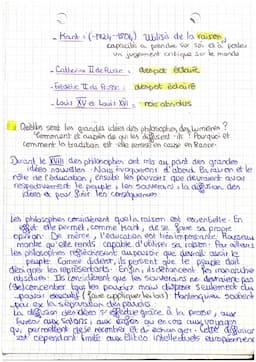 - Kant : (1724-1804) Utilisé de la raison,
capacité à prendre sur soi et à porter
un jugement critique sur le monde
- Catherine II de Russie : despot éclairé
- Frédéric II de Prusse : despot éclairé
- Louis XV et Louis XVI : rois absolus
Quelles sont les grandes idées des philosophes des Lumières ?
Comment et auprès de qui les diffusent-ils ? Pourquoi et
comment la tradition est-elle remise en cause en France.
Durant le XVIII des philosophes ont mis au point des grandes
idées nouvelles. Nous évoquerons d'abord la raison et le
rôle de l'éducation, ensuite les pouvoirs que devraient avoir
respectivement le peuple, les souverains, la diffusion des
idées et pour finir les conséquences
Les philosophes considèrent que la raison est essentielle. En
effet elle permet, comme Kant, de se faire sa propre
opinion. De même, l'éducation est très importante. Rousseau
montre qu'elle rends capable d'utiliser sa raison. Par ailleurs
les philosophes réfléchissent au pouvoir que devrait avoir le
peuple. Comme Diderot, ils pensent que le peuple doit
les représentants. Enfin, ils dénoncent les monarchie
absolues. Ils considèrent que les souverains ne devraient pas
concentrer tous les pouvoirs mais disposer seulement du
pouvoir exécutif (faire appliquer les lois) Montesquieu soutient
par ex la séparation des pouvoirs.
La diffusion des idées s'effectue grâce à la presse, aux
livres, aux salons, aux cafés
qui permettent de se et de discuter. Cette diffusion
est cependant limité aux élites intellectuels européennes